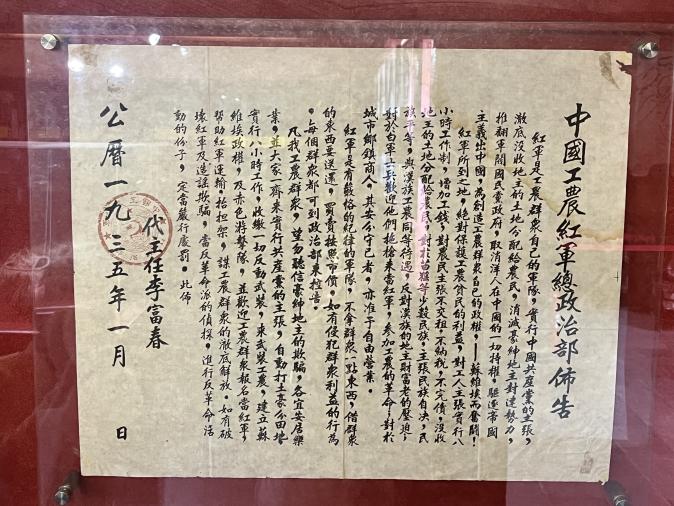 中國工農紅軍總政治部佈告
紅軍是工農群衆自己的軍隊，實行中國共産黨的主張，
澈底沒收地主的土地分配給農民，消滅豪紳地主封建勢力，
推翻軍閥國民黨政府，取消洋人在中國的一切特權，驅逐帝國
主義出中國，為創造工農群衆自己的政權，——蘇維埃而奮鬪！
紅軍所到之地，絕對保護工農貧民的利益，對工人主張實行八
小時工作制，增加工錢，對農民主張不交租，不納稅，不完債，沒收
地主的土地分配給農民，對於苗猺等少數民族，主張民族自决，民
族平等，與漢族工農同等待遇，反對漢族的地主財富老的壓迫，
對於白軍士兵歡迎他們拖槍來當紅軍，參加工農的革命，對於
城市鄉鎮商人，其安分守己者，亦准予自由營業。
紅軍是有嚴格的紀律的軍隊，不拿群衆一點東西，借群衆
的東西要送還，買賣按照市價，如有侵犯群衆利益的行為
，每個群衆都可到政治部來控告。
凡我工農群衆，望勿聽信豪紳地主的欺騙，各宜安居樂
業，並大家一齊來實行共産黨的主張，自動打土豪分田地
實行八小時工作，收繳一切反動武裝，來武裝工農，建立蘇
維埃政權，及赤色游擊隊，並歡迎工農群衆報名當紅軍，
幫助紅軍運輸，抬担架，謀工農群衆的澈底解放。如有破
壞紅軍及造謠欺騙，當反革命派的偵探，進行反革命活
動的份子，定當嚴行處罰。此佈
代主任李富春
公曆一九三五年一月 日